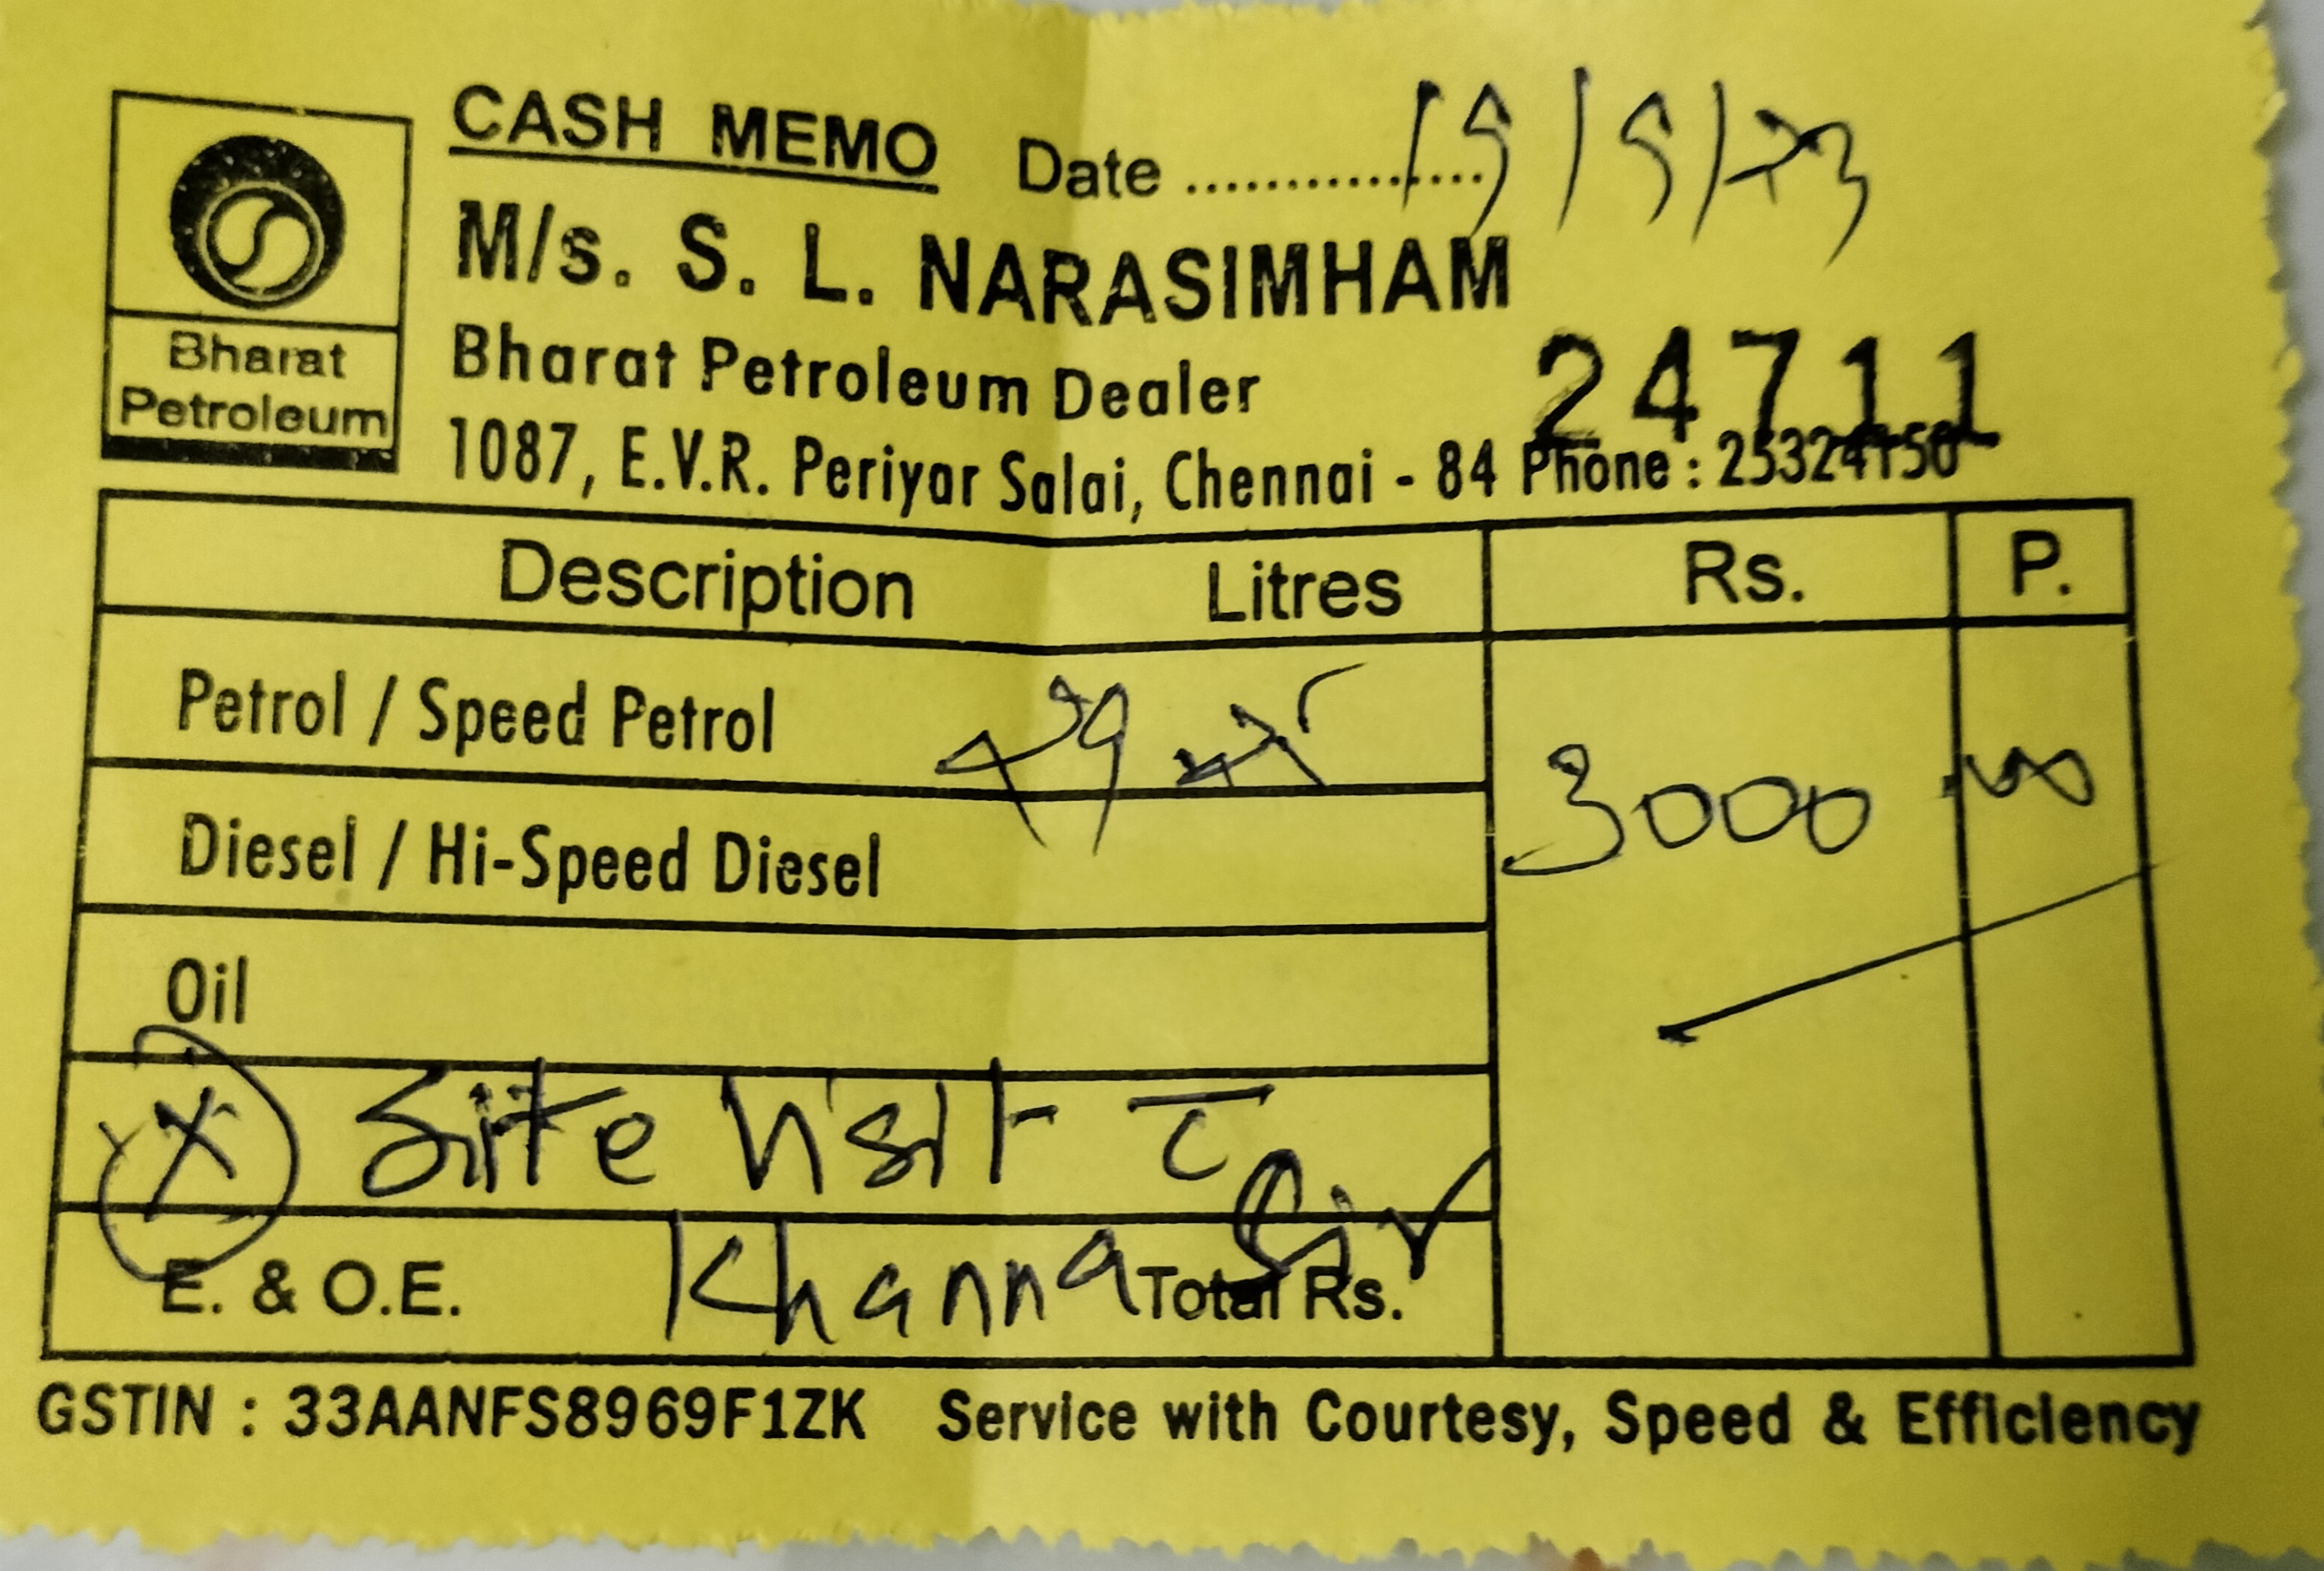 CASH MEMO Date ............... 15/5/23
M/s. S. L. NARASIMHAM
Bharat Petroleum
Bharat Petroleum Dealer
24711
1087, E.V.R. Periyar Salai, Chennai - 84 Phone : 25324150
Description Litres Rs. P.
Petrol / Speed Petrol
3000 .00
Diesel / Hi-Speed Diesel
Oil
X Site visit
Khanna Sir
E. & O.E. Total Rs.
GSTIN : 33AANFS8969F1ZK Service with Courtesy, Speed & Efficiency